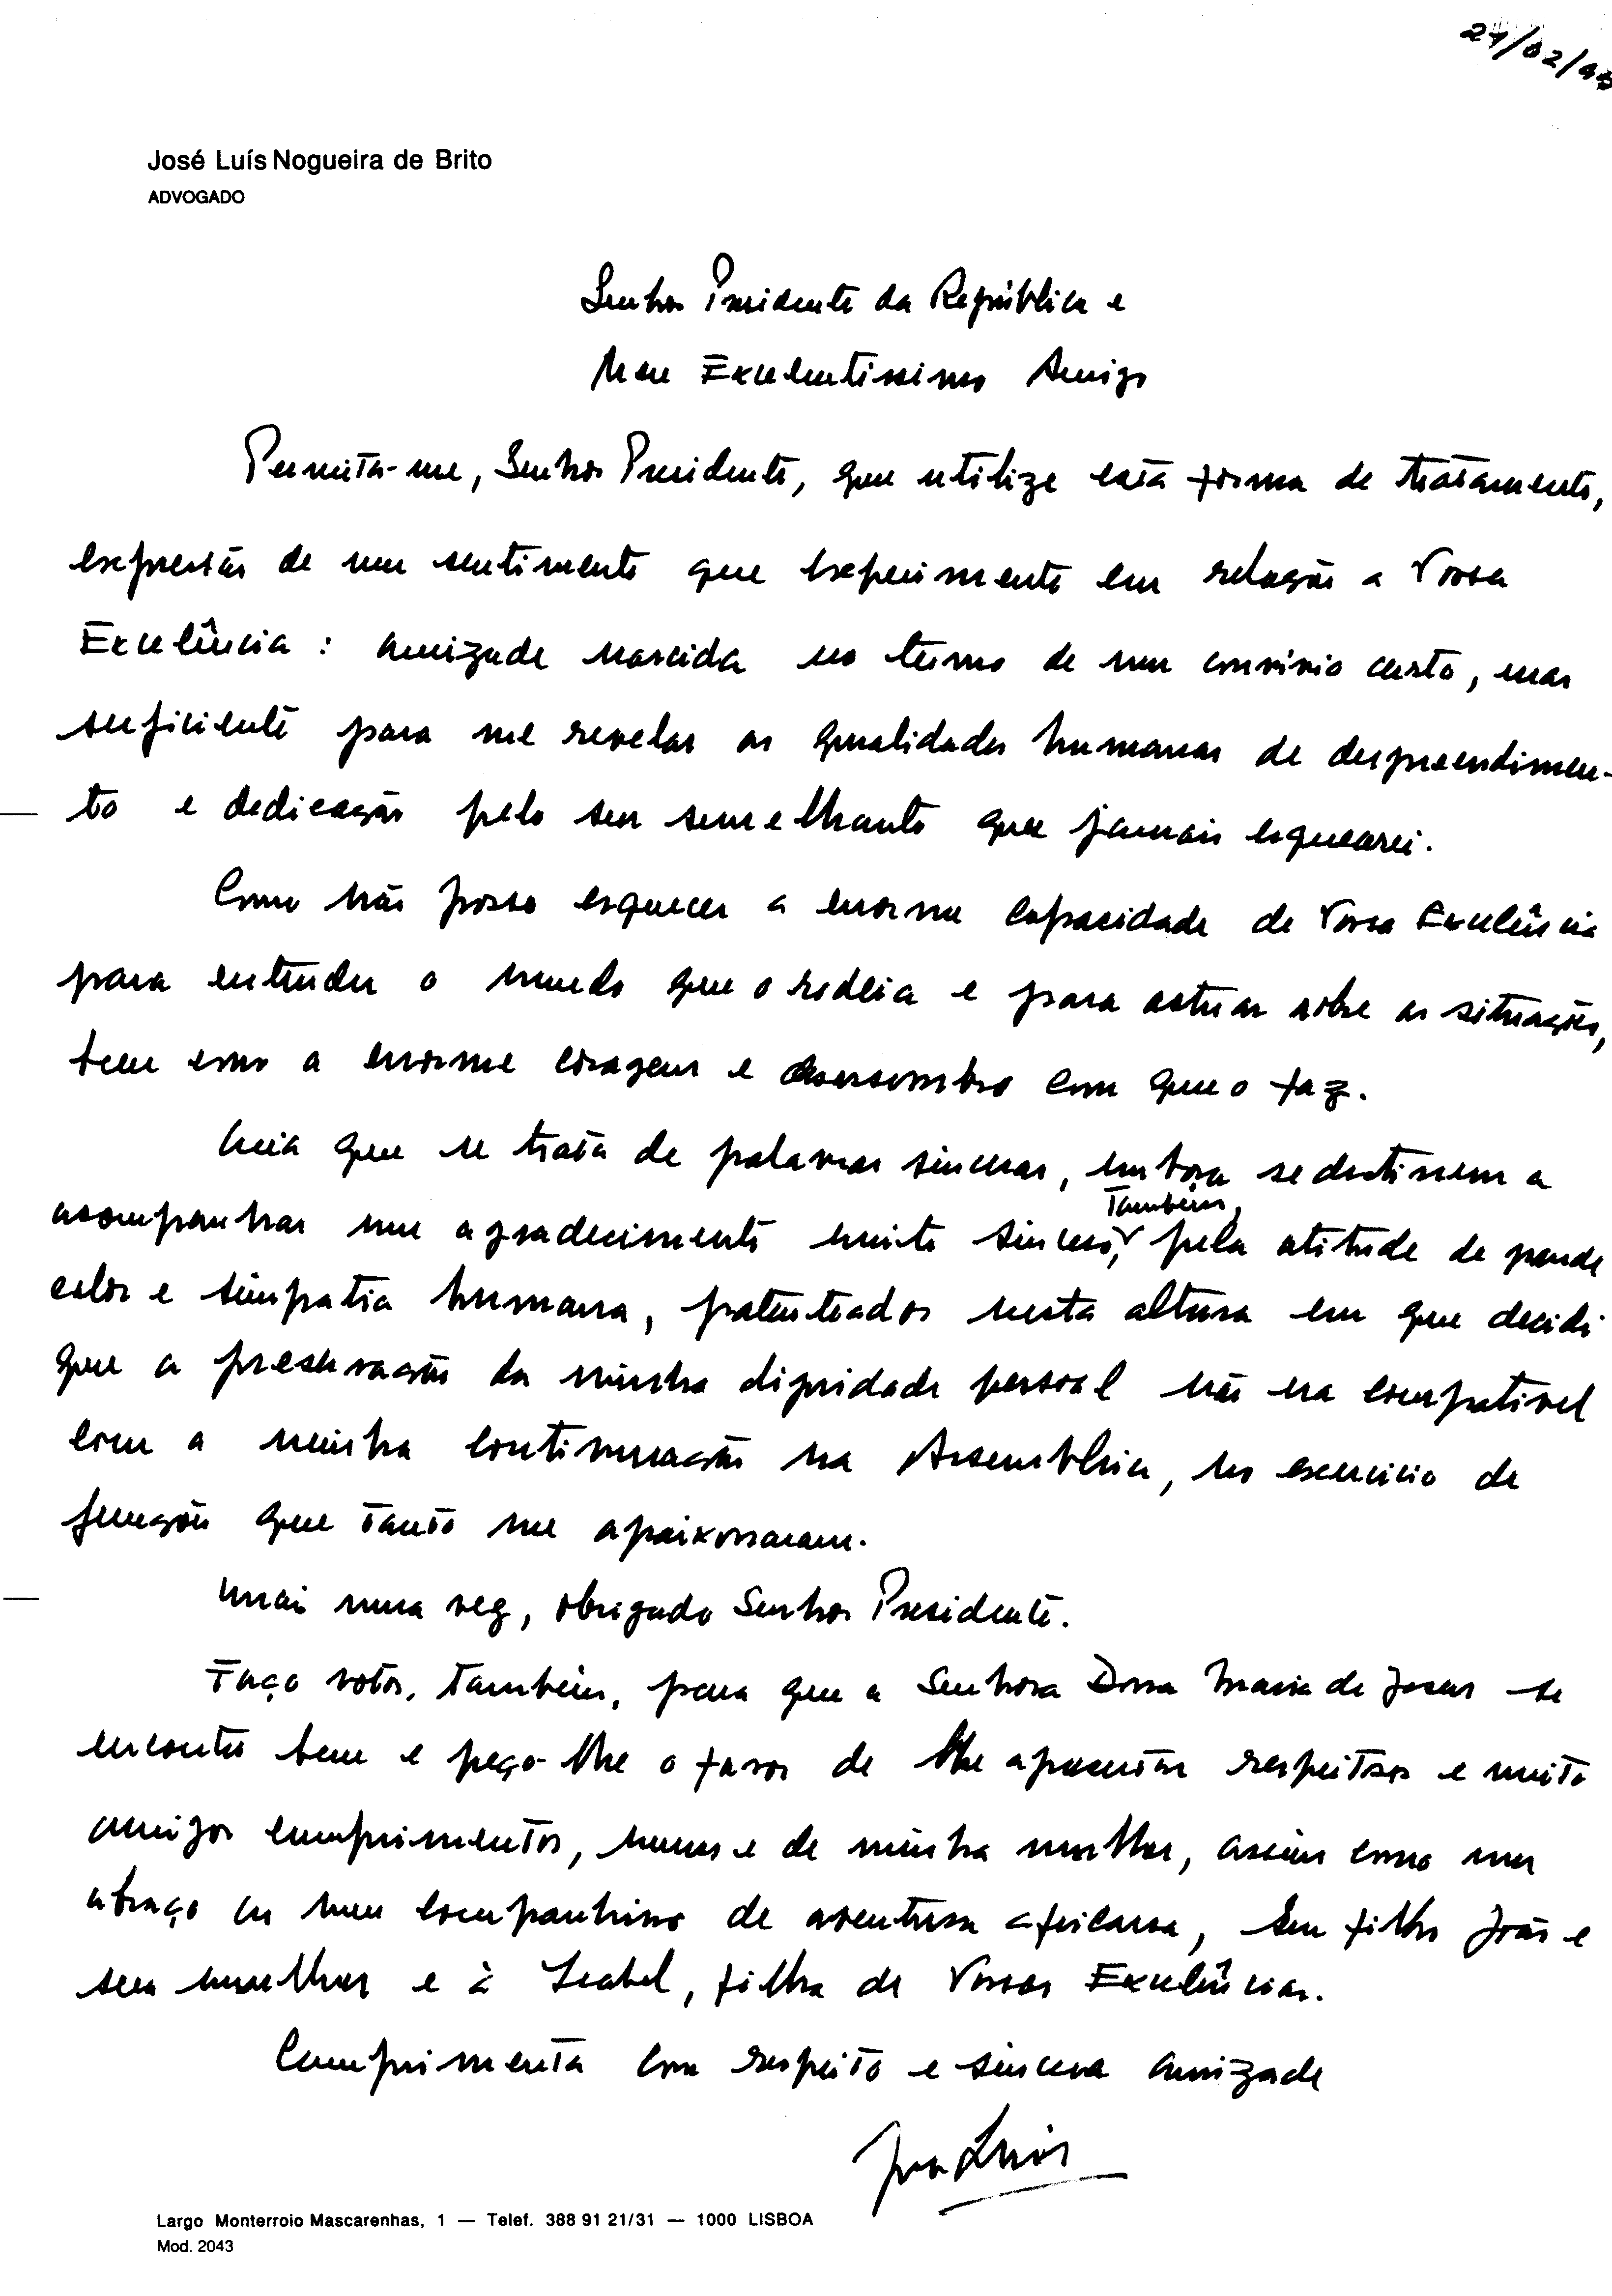 José Luís Nogueira de Brito
ADVOGADO
Senhor Presidente da República e
Meu Excelentissimo Amigo
Permita-me, Senhor Presidente, que utilize esta forma de tratamento,
expressão de um sentimento que experimento em relação a Vossa
Excelência: amizade nascida no termo de um convivio curto, mas
suficiente para me revelar as qualidades humanas de despreendimen-
to e dedicação pelo seu semelhante que jamais esquecerei.
Como não posso esquecer a enorme capacidade de Vossa Excelência
para entender o mundo que o rodeia e para actuar sobre as situações,
bem como a enorme coragem e desassombro com que o faz.
Creia que se trata de palavras sinceras, embora se destinem a
acompanhar um agradecimento muito sincero,
também,
pela atitude de grande
calor e simpatia humana, patenteados nesta altura em que decidi
que a preservação da minha dignidade pessoal não era compativel
com a minha continuação na Assembleia, no exercicio de
funções que tanto me apaixonaram.
Mais uma vez, obrigado Senhor Presidente.
Faço votos, também, para que a Senhora Dona Maria de Jesus se
encontre bem e peço-lhe o favor de lhe apresentar respeitosos e muito
amigos cumprimentos, meus e de minha mulher, assim como um
abraço ao meu companheiro de aventura africana, seu filho João e
sua mulher e à Isabel, filha de Vossas Excelências.
Cumprimenta com respeito e sincera amizade
José Luís
Largo Monterroio Mascarenhas, 1 — Telef. 388 91 21/31 — 1000 LISBOA
Mod. 2043